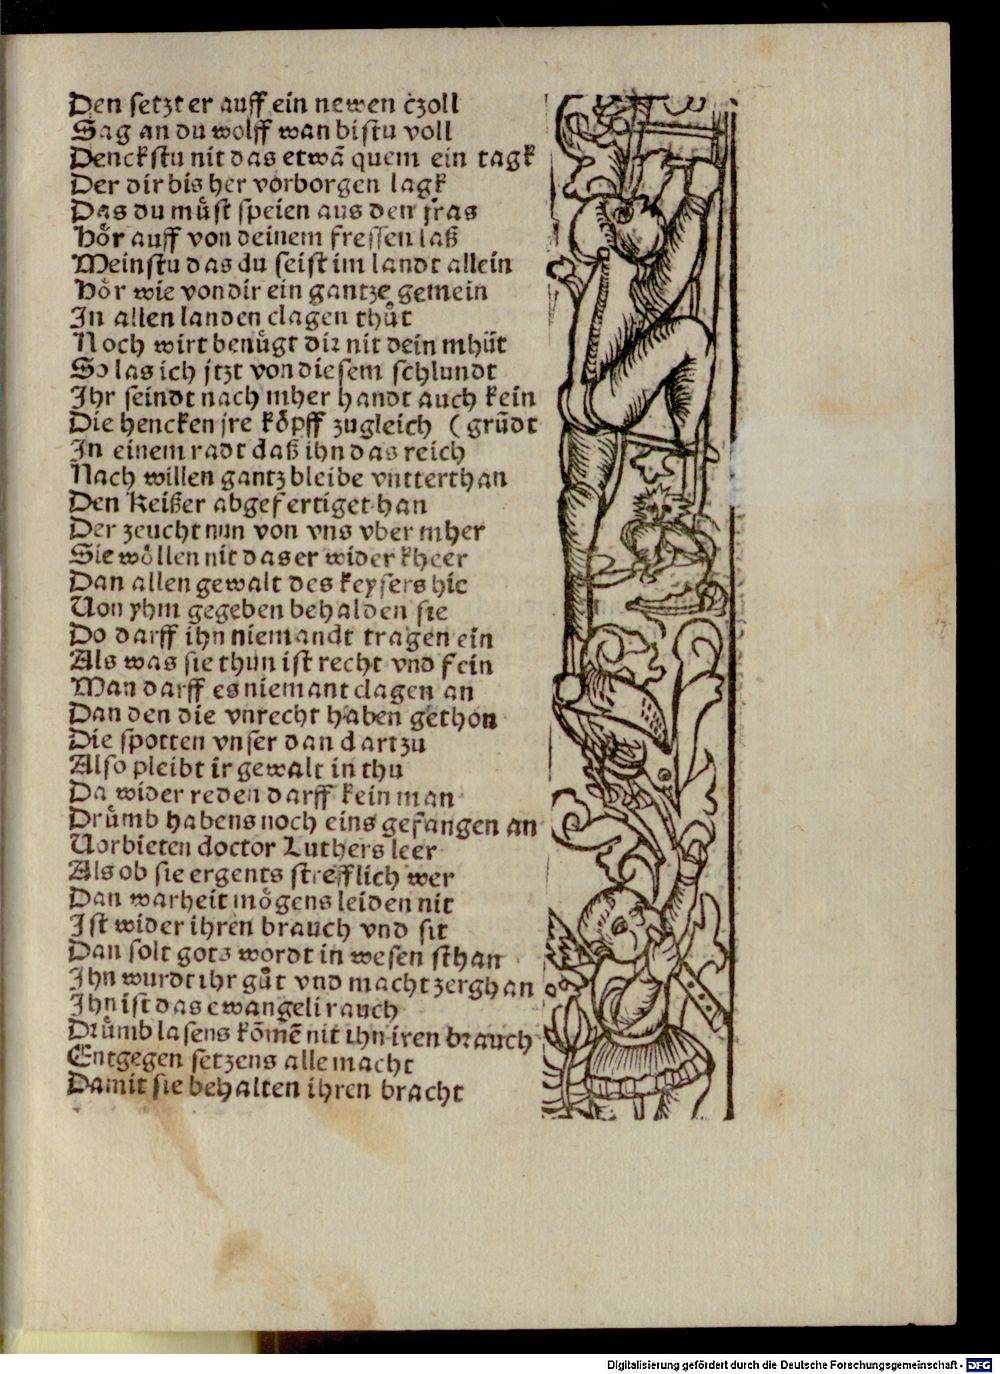 Den setzt er auff ein newen czoll
Sag an du wolff wan bistu voll
Denckstu nit das etwā quem ein tagk
Der dir bis her vorborgen lagk
Das du muͤst speien aus den fras
Hoͤr auff von deinem fressen laß
Meinstu das du seist im landt allein
Hoͤr wie von dir ein gantze gemein
In allen landen clagen thuͤt
Noch wirt benuͤgt dir nit dein mhuͤt
So las ich jtzt von diesem schlundt
Ihr seindt nach mher handt auch kein
Die hencken jre koͤpff zugleich (grūdt
In einem radt daß ihn das reich
Nach willen gantz bleibe vntterthan
Den Keißer abgefertiget han
Der zeucht nun von vns vber mher
Sie woͤllen nit das er wider kheer
Dan allen gewalt des keysers hie
Von yhm gegeben behalden sie
Do darff ihn niemandt tragen ein
Als was sie thun ist recht vnd fein
Man darff es niemant clagen an
Dan den die vnrecht haben gethon
Die spotten vnser dan dartzu
Also pleibt ir gewalt in thu
Da wider reden darff kein man
Druͤmb habens noch eins gefangen an
Vorbieten doctor Luthers leer
Als ob sie ergents strefflich wer
Dan warheit moͤgens leiden nit
Ist wider ihren brauch vnd sit
Dan solt gots wordt in wesen sthan
Ihn wurdt ihr guͤt vnd macht zerghan
Ihn ist das ewangeli rauch
Druͤmb lasens kōmē nit ihn iren brauch
Entgegen setzens alle macht
Damit sie behalten ihren bracht
Digitalisierung gefördert durch die Deutsche Forschungsgemeinschaft - DFG